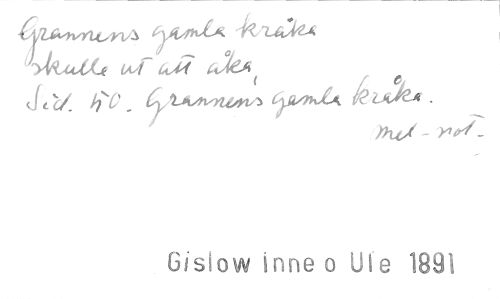 Grannens gamla kråka
skulle ut att åka,
Sid. 50. Grannens gamla kråka.
mel-not-
Gislow Inne o Ule 1891